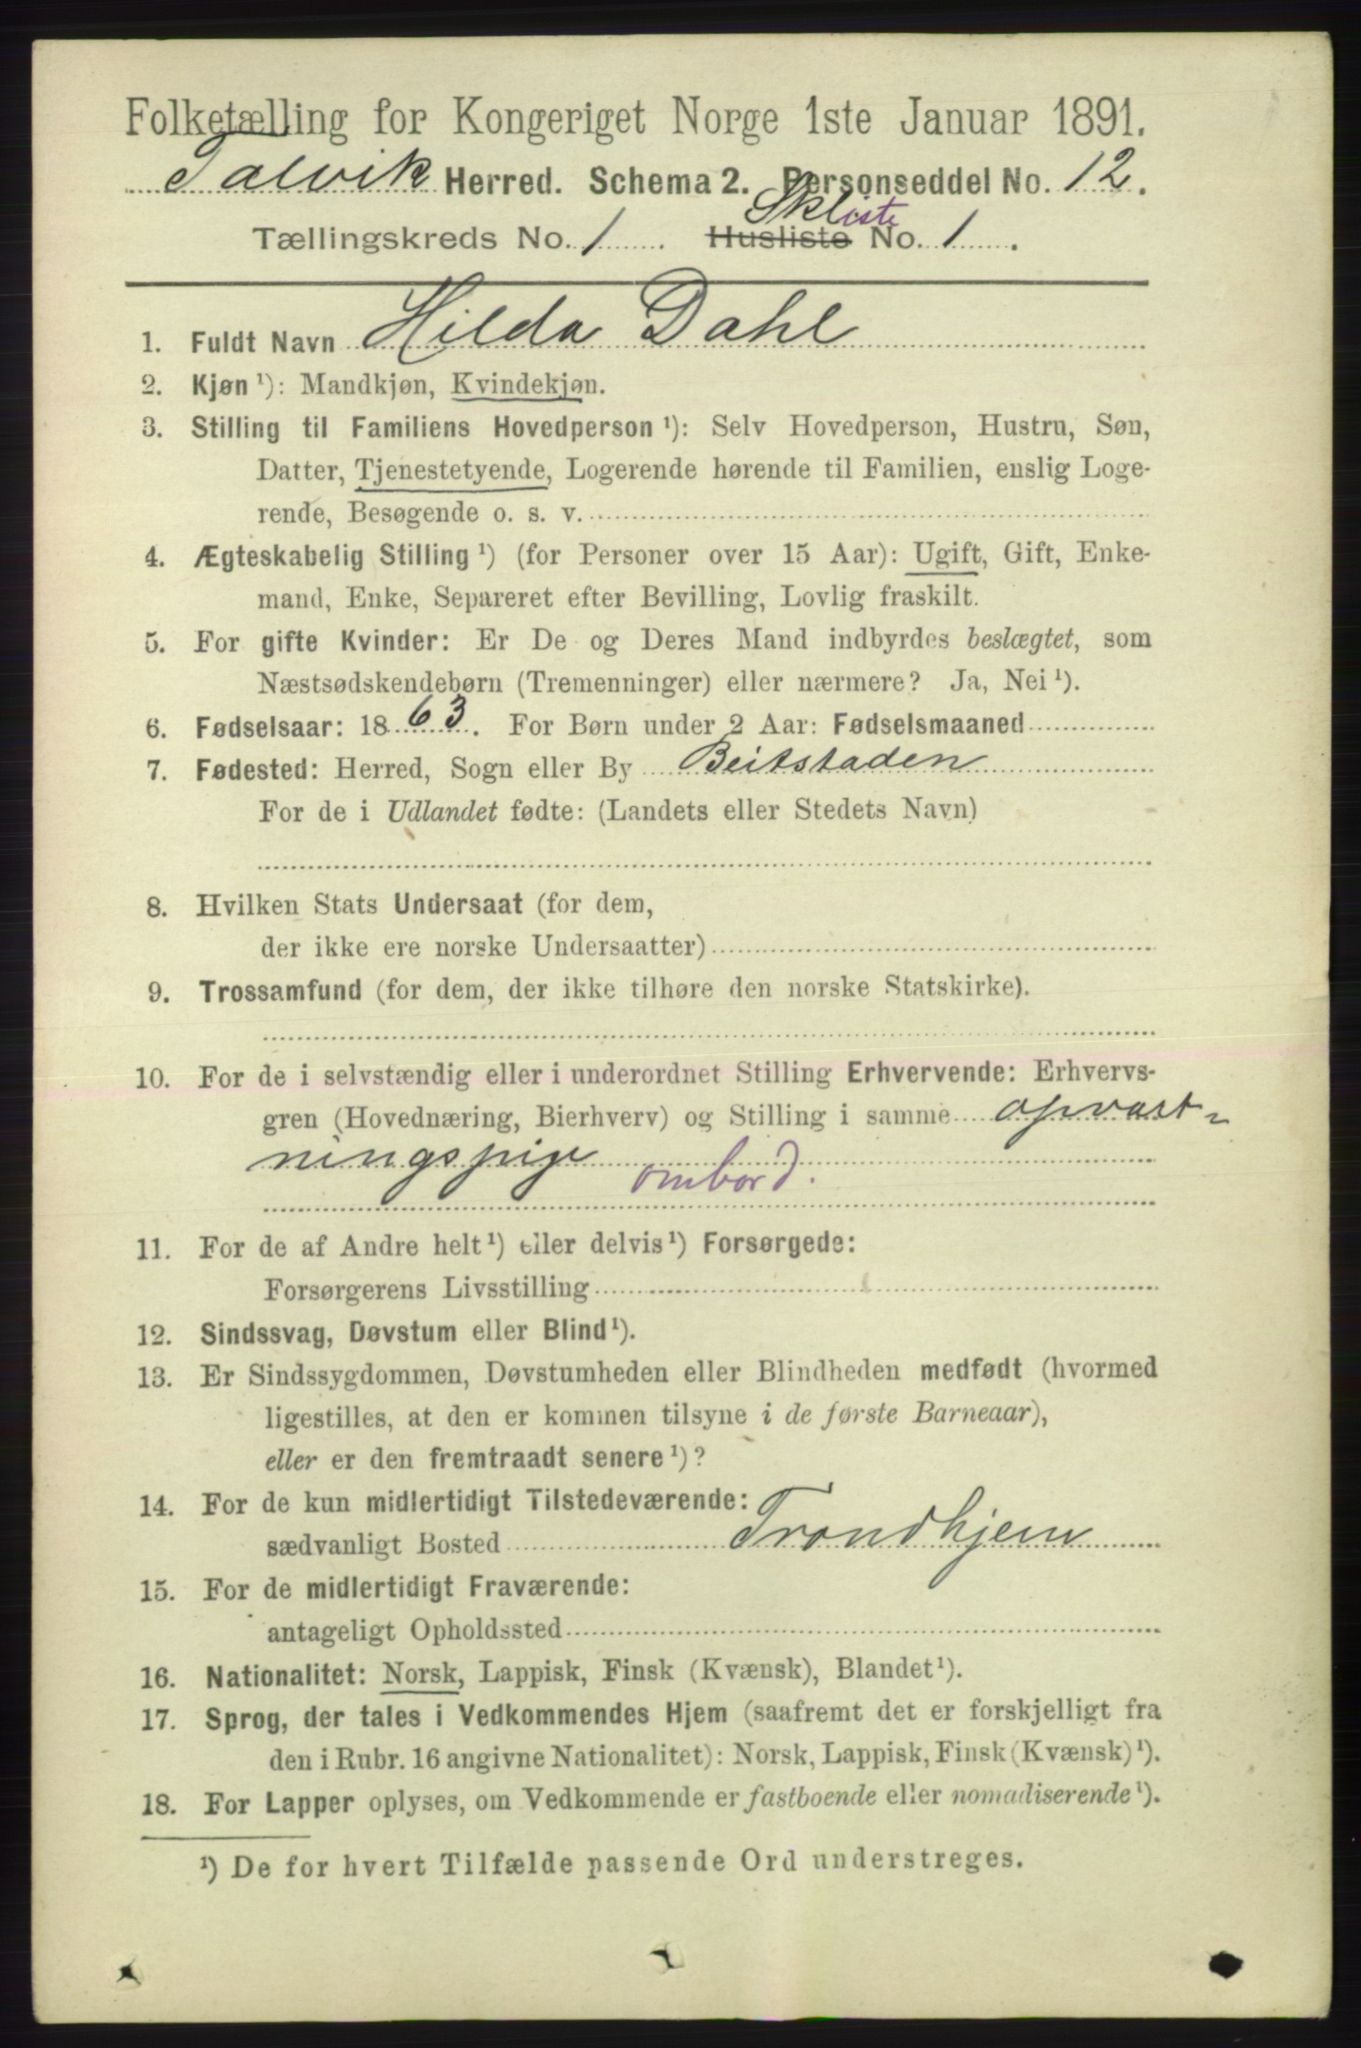 Folketælling for Kongeriget Norge 1ste Januar 1891.
Talvik Herred. Schema 2. Personseddel No. 12.
Skliste
Tællingskreds No. 1. Husliste No. 1.
1. Fuldt Navn Hilda Dahl
2. Kjøn ¹): Mandkjøn, Kvindekjøn.
3. Stilling til Familiens Hovedperson ¹): Selv Hovedperson, Hustru, Søn,
Datter, Tjenestetyende, Logerende hørende til Familien, enslig Loge-
rende, Besøgende o. s. v.
4. Ægteskabelig Stilling ¹) (for Personer over 15 Aar): Ugift, Gift, Enke-
mand, Enke, Separeret efter Bevilling, Lovlig fraskilt.
5. For gifte Kvinder: Er De og Deres Mand indbyrdes beslægtet, som
Næstsødskendebørn (Tremenninger) eller nærmere? Ja, Nei ¹).
6. Fødselsaar: 18 63. For Børn under 2 Aar: Fødselsmaaned
7. Fødested: Herred, Sogn eller By Beitstaden
For de i Udlandet fødte: (Landets eller Stedets Navn)
8. Hvilken Stats Undersaat (for dem,
der ikke ere norske Undersaatter)
9. Trossamfund (for dem, der ikke tilhøre den norske Statskirke).
10. For de i selvstændig eller i underordnet Stilling Erhvervende: Erhvervs-
gren (Hovednæring, Bierhverv) og Stilling i samme opvart-
ningspige ombord.
11. For de af Andre helt ¹) eller delvis ¹) Forsørgede:
Forsørgerens Livsstilling
12. Sindssvag, Døvstum eller Blind ¹).
13. Er Sindssygdommen, Døvstumheden eller Blindheden medfødt (hvormed
ligestilles, at den er kommen tilsyne i de første Barneaar),
eller er den fremtraadt senere ¹)?
14. For de kun midlertidigt Tilstedeværende:
sædvanligt Bosted Trondhjem
15. For de midlertidigt Fraværende:
antageligt Opholdssted
16. Nationalitet: Norsk, Lappisk, Finsk (Kvænsk), Blandet ¹).
17. Sprog, der tales i Vedkommendes Hjem (saafremt det er forskjelligt fra
den i Rubr. 16 angivne Nationalitet): Norsk, Lappisk, Finsk (Kvænsk) ¹).
18. For Lapper oplyses, om Vedkommende er fastboende eller nomadiserende ¹).
¹) De for hvert Tilfælde passende Ord understreges.